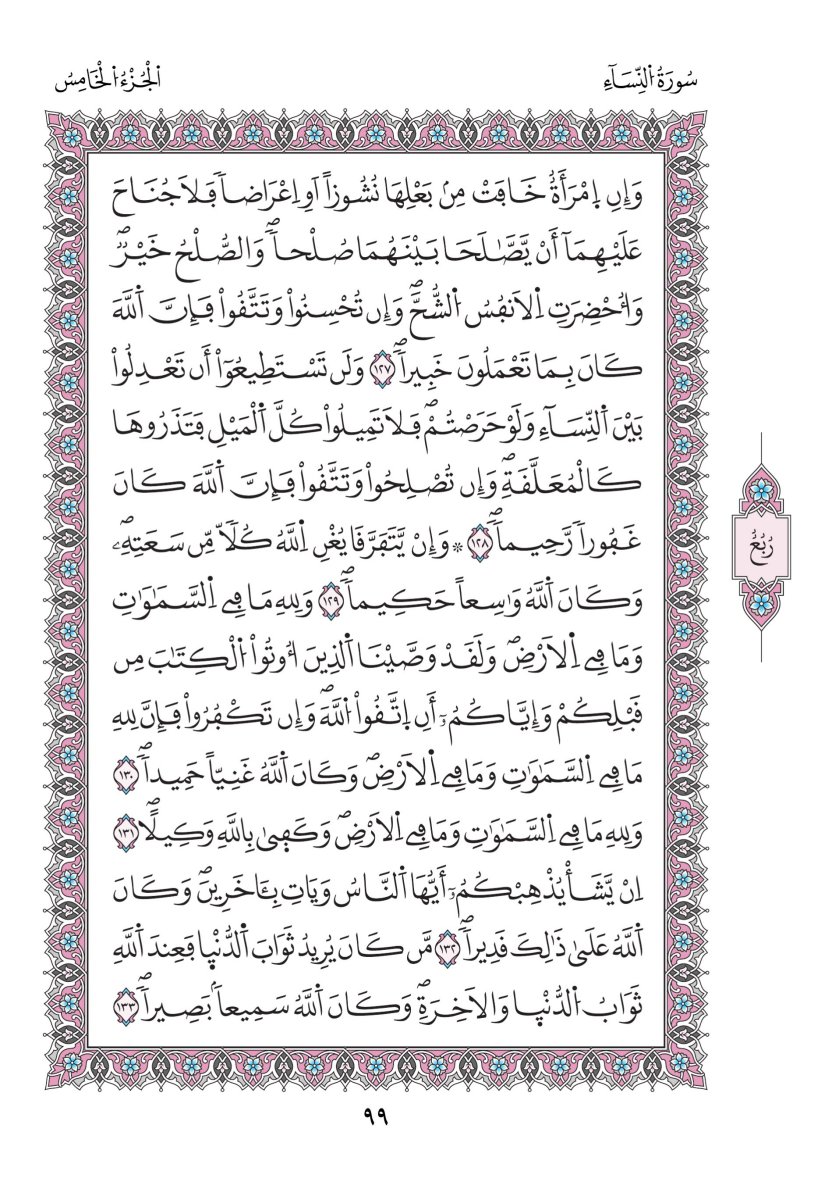 سُورَةُ اُ۬لنِّسَآءِ
اَ۬لْجُزْءُ اُ۬لْخَامِسُ
وَإِنِ اِ۪مْرَأَةٌ خَافَتْ مِنۢ بَعْلِهَا نُشُوزاً اَوِ اِعْرَاضاٗ فَلَا جُنَاحَ
عَلَيْهِمَآ أَنْ يَّصَّٰلَحَا بَيْنَهُمَا صُلْحاٗۖ وَالصُّلْحُ خَيْرٞۖ
وَأُحْضِرَتِ اِ۬لَانفُسُ اُ۬لشُّحَّۖ وَإِن تُحْسِنُواْ وَتَتَّقُواْ فَإِنَّ اَ۬للَّهَ
كَانَ بِمَا تَعْمَلُونَ خَبِيراٗۖ ١٢٧ وَلَن تَسْتَطِيعُوٓاْ أَن تَعْدِلُواْ
بَيْنَ اَ۬لنِّسَآءِ وَلَوْ حَرَصْتُمْۖ فَلَا تَمِيلُواْ كُلَّ اَ۬لْمَيْلِ فَتَذَرُوهَا
كَالْمُعَلَّقَةِۖ وَإِن تُصْلِحُواْ وَتَتَّقُواْ فَإِنَّ اَ۬للَّهَ كَانَ
غَفُوراٗ رَّحِيماٗۖ ١٢٨ * وَإِنْ يَّتَفَرَّقَا يُغْنِ اِ۬للَّهُ كُلّاٗ مِّن سَعَتِهِۦۖ
وَكَانَ اَ۬للَّهُ وَٰسِعاً حَكِيماٗۖ ١٢٩ وَلِلهِ مَا فِے اِ۬لسَّمَٰوَٰتِ
وَمَا فِے اِ۬لَارْضِۖ وَلَقَدْ وَصَّيْنَا اَ۬لذِينَ أُوتُواْ اُ۬لْكِتَٰبَ مِن
قَبْلِكُمْ وَإِيَّاكُمُۥٓ أَنِ اِ۪تَّقُواْ اُ۬للَّهَۖ وَإِن تَكْفُرُواْ فَإِنَّ لِلهِ
مَا فِے اِ۬لسَّمَٰوَٰتِ وَمَا فِے اِ۬لَارْضِۖ وَكَانَ اَ۬للَّهُ غَنِيّاً حَمِيداٗۖ ١٣٠
وَلِلهِ مَا فِے اِ۬لسَّمَٰوَٰتِ وَمَا فِے اِ۬لَارْضِۖ وَكَفَىٰ بِاللَّهِ وَكِيلًاۖ ١٣١
اِنْ يَّشَأْ يُذْهِبْكُمُۥٓ أَيُّهَا اَ۬لنَّاسُ وَيَاتِ بِـَٔاخَرِينَۖ وَكَانَ
اَ۬للَّهُ عَلَىٰ ذَٰلِكَ قَدِيراٗۖ ١٣٢ مَّن كَانَ يُرِيدُ ثَوَابَ اَ۬لدُّنْيَا فَعِندَ اَ۬للَّهِ
ثَوَابُ اُ۬لدُّنْيَا وَالَاخِرَةِۖ وَكَانَ اَ۬للَّهُ سَمِيعاَۢ بَصِيراٗۖ ١٣٣
رُبُعُ
٩٩